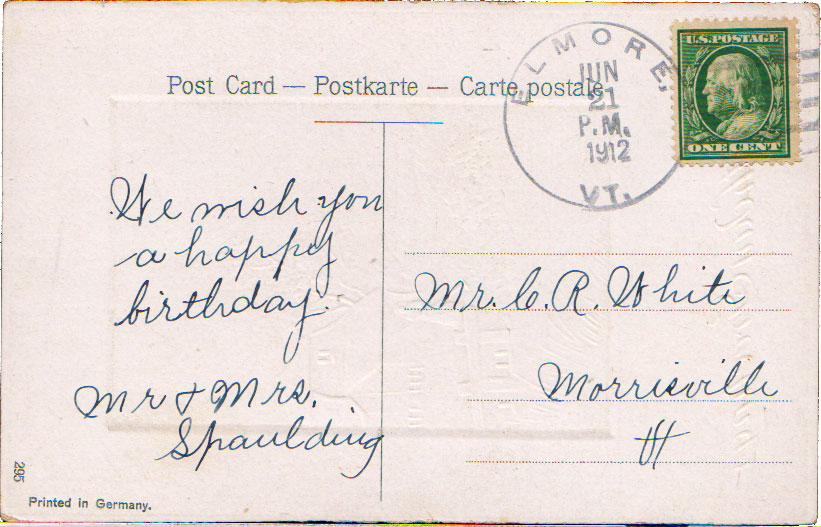 Post Card — Postkarte — Carte postale
ELMORE,
JUN
21
P.M.
1912
VT.
U.S. POSTAGE
ONE CENT
We wish you
a happy
birthday.
Mr & Mrs.
Spaulding
Mr. C. R. White
Morrisville
Vt
295
Printed in Germany.